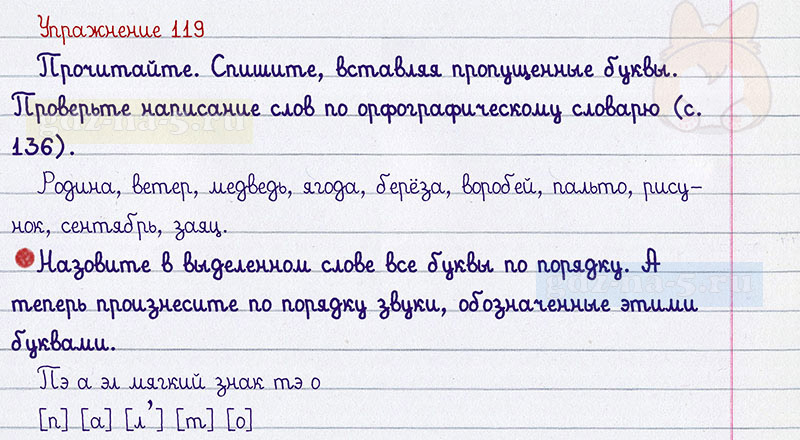 Упражнение 119
Прочитайте. Спишите, вставляя пропущенные буквы.
Проверьте написание слов по орфографическому словарю (с.
136).
Родина, ветер, медведь, ягода, берёза, воробей, пальто, рису-
нок, сентябрь, заяц.
Назовите в выделенном слове все буквы по порядку. А
теперь произнесите по порядку звуки, обозначенные этими
буквами.
Пэ а эл мягкий знак тэ о
[п] [а] [л’] [т] [о]
gdz-na-5.ru
gdz-na-5.ru